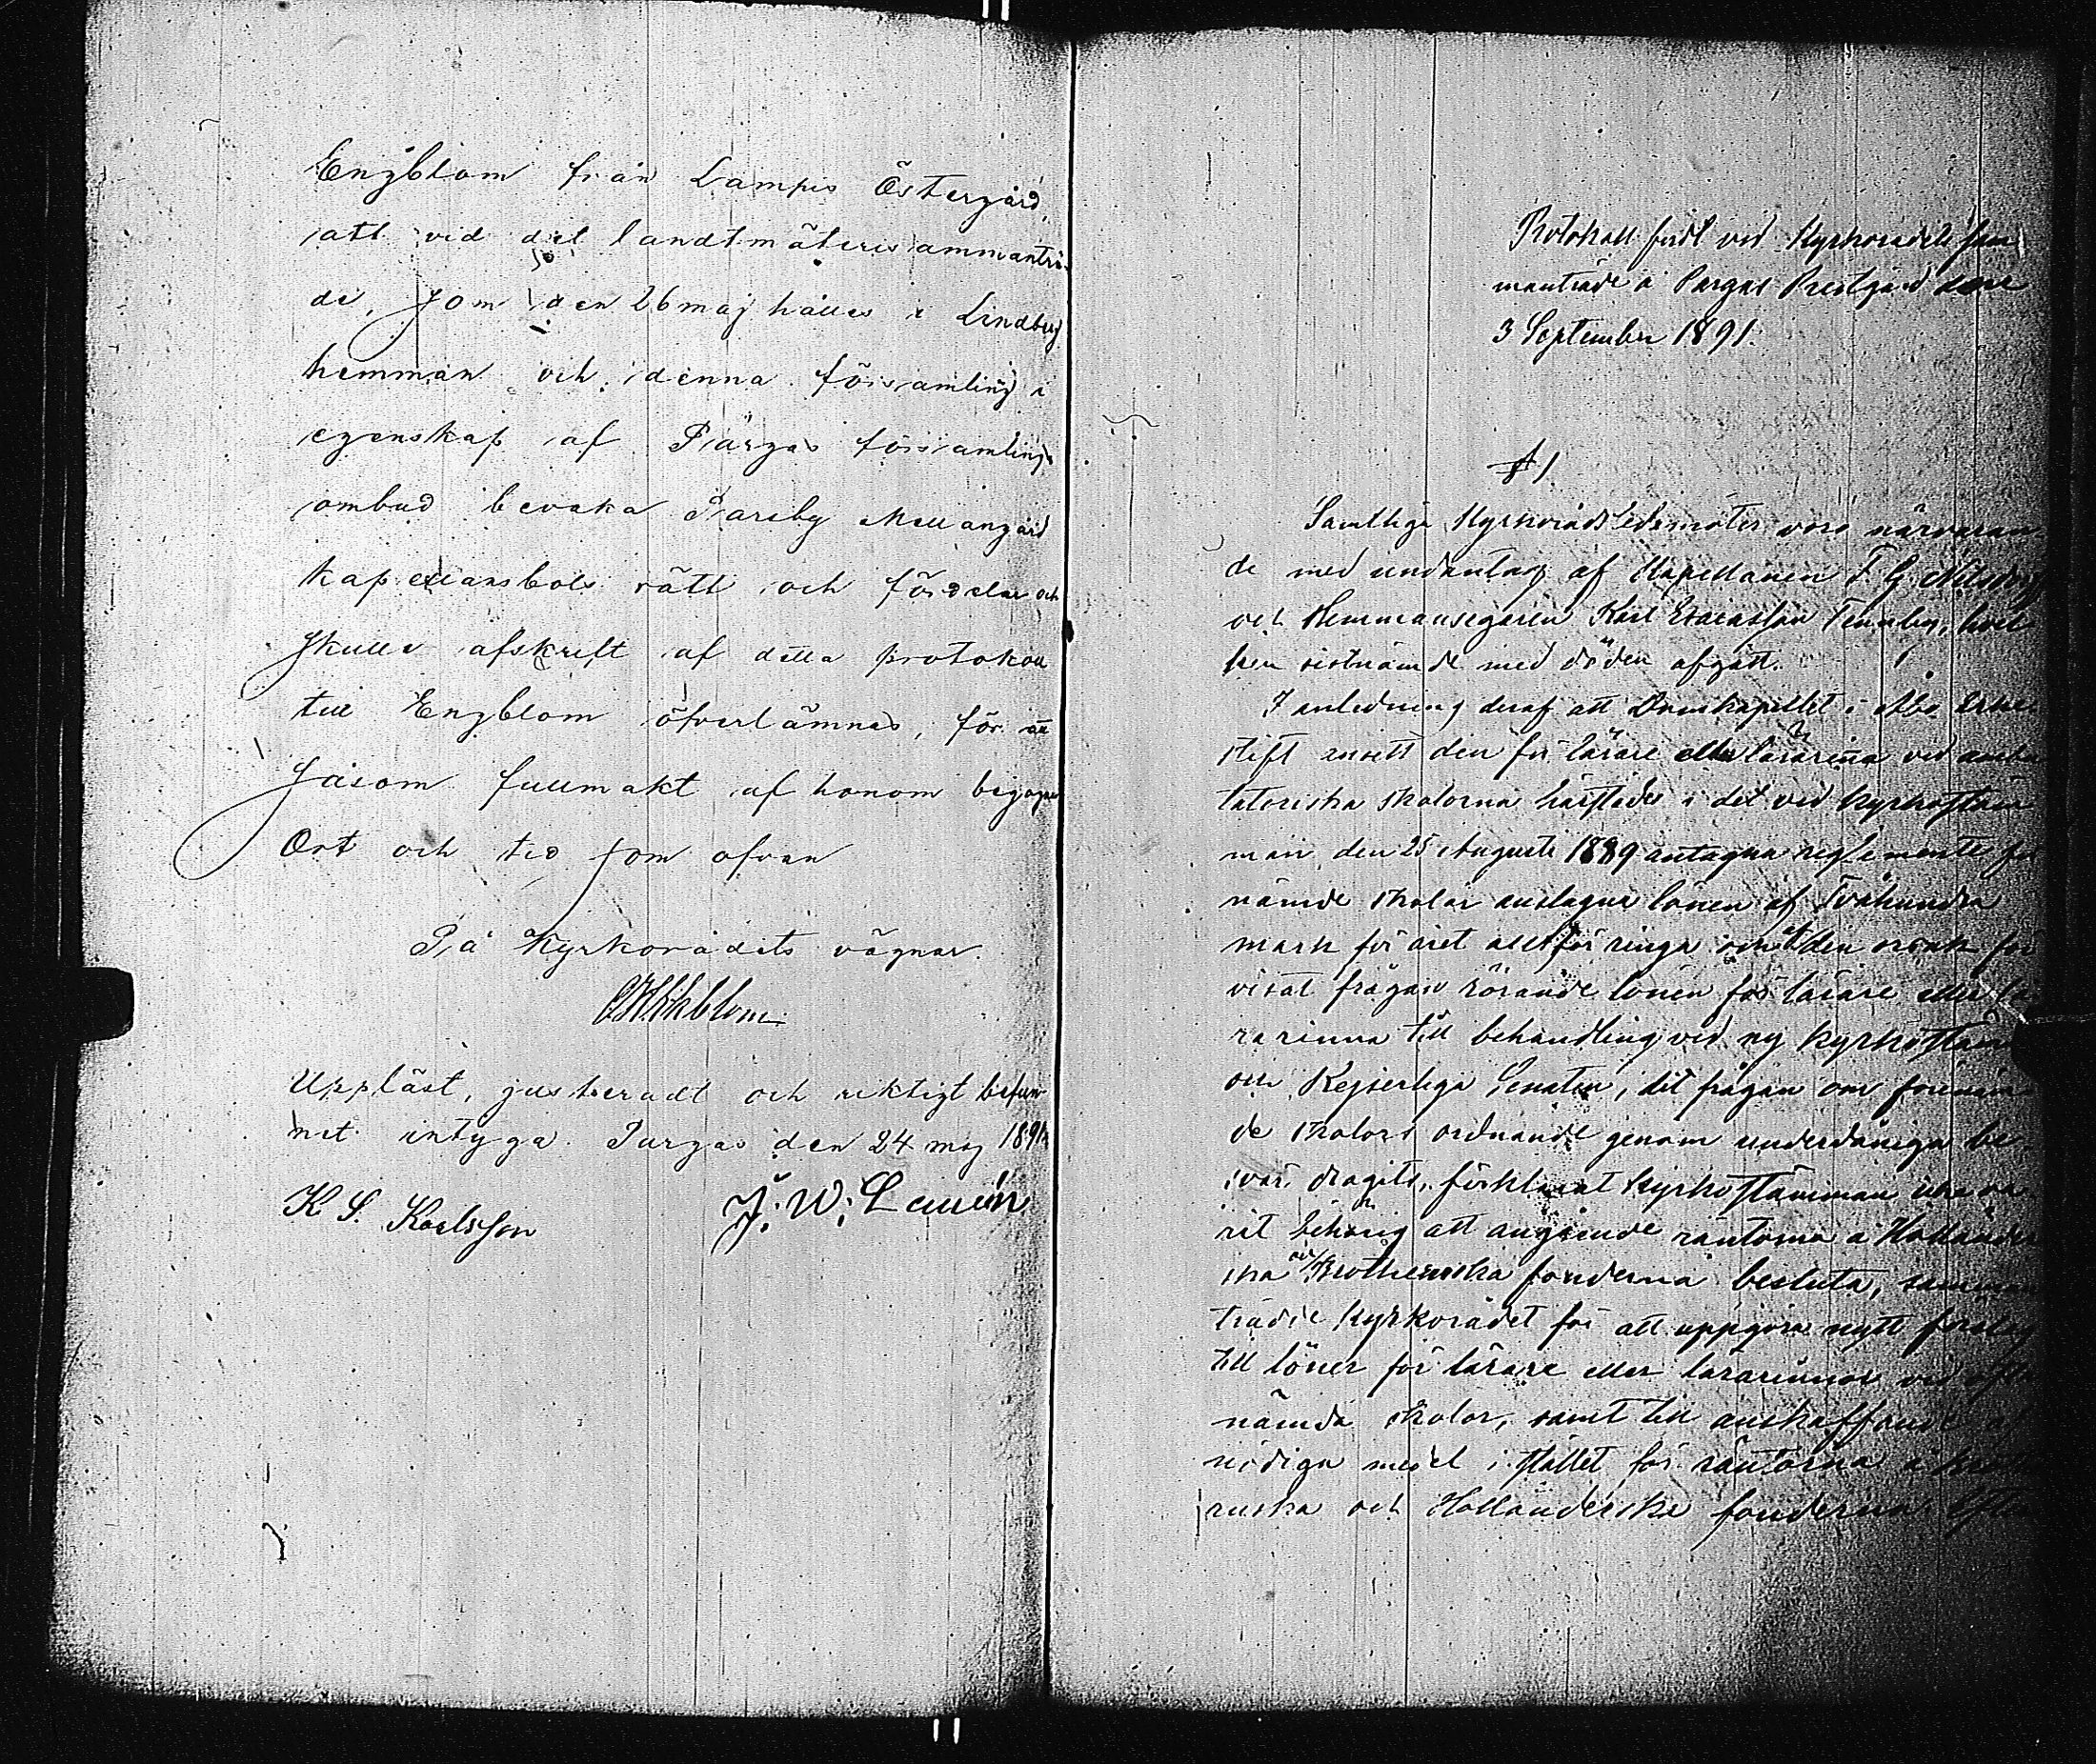 Engblom från Lampis Östergård,
att vid det landtmäterisammanträ-
de, som den 26 maj hålles å Lindberg
hemman och denna församling i
egenskap af Pargas församlings
ombud bevaka Pareby Mellangård
kapellansbols rätt och fördelar och
skulle afskrift af detta protokoll
till Engblom öfverlämnas, för att
såsom fullmakt af honom begagnas
Ort och tid som ofvan
På Kyrkorådets vägnar.
Uppläst, justeradt och riktigt befun-
net intyga. Pargas den 24 maj 1891.
K S. Karlsson J. W. Lauren
Protokoll fördt vid Kyrkorådets sam
manträde å Pargas Prestgård den
3 September 1891.
§ 1.
Samtliga Kyrkorådsledamöter voro närvaran
de med undantag af Kapellanen F. G.
och Hemmansegaren Karl Tennby, hvil
ken sistnämde med döden afgått.
I anledning deraf att Domkapitlet i Åbo Erke
stift ansett den för lärare eller lärarinna vid ambu
latoriska skolorna härstädes i det vid kyrkostäm
man den 25 Augusti 1889 antagna reglemente för
nämde skolor anslagna lönen af Tvåhundra
mark för året allt för ringa och åt den orsak för
visat frågan rörande lönen för lärare eller lä-
rarinna till behandling vid ny kyrkostäm
och Kejserliga Senaten, dit frågan om förenäm
de skolors ordnande genom underdåniga be
svär dragits, förklarat Kyrkostämman icke va
rit behörig att angående räntorna å Holländer
ska och fonderna besluta, samman
trädde Kyrkorådet för att uppgöra nytt förslag
till löner för lärare eller lärarinnor vid ofta
nämda skolor, samt till anskaffande af
nödiga medel i stället för räntorna å
och Holländerska fonderna. Efter